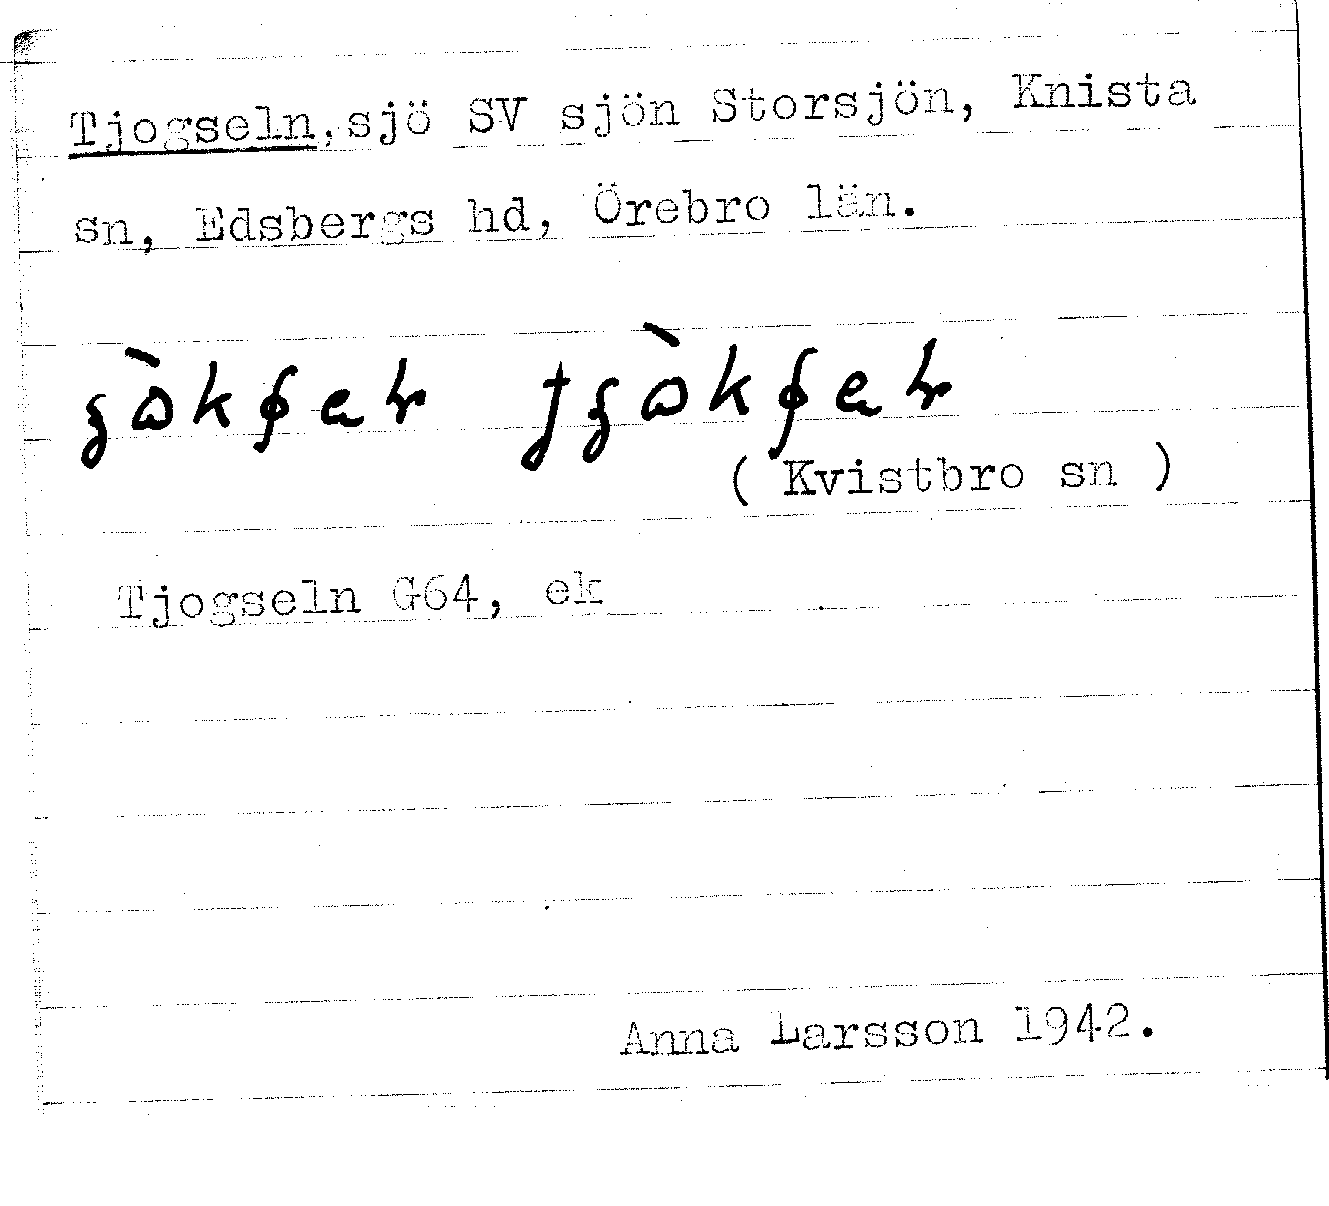 Tjogseln, sjö SV sjön Storsjön, Knista
sn, Edsbergs hd, Örebro län.
( Kvistbro sn )
Tjogseln G64, ek
Anna Larsson 1942.